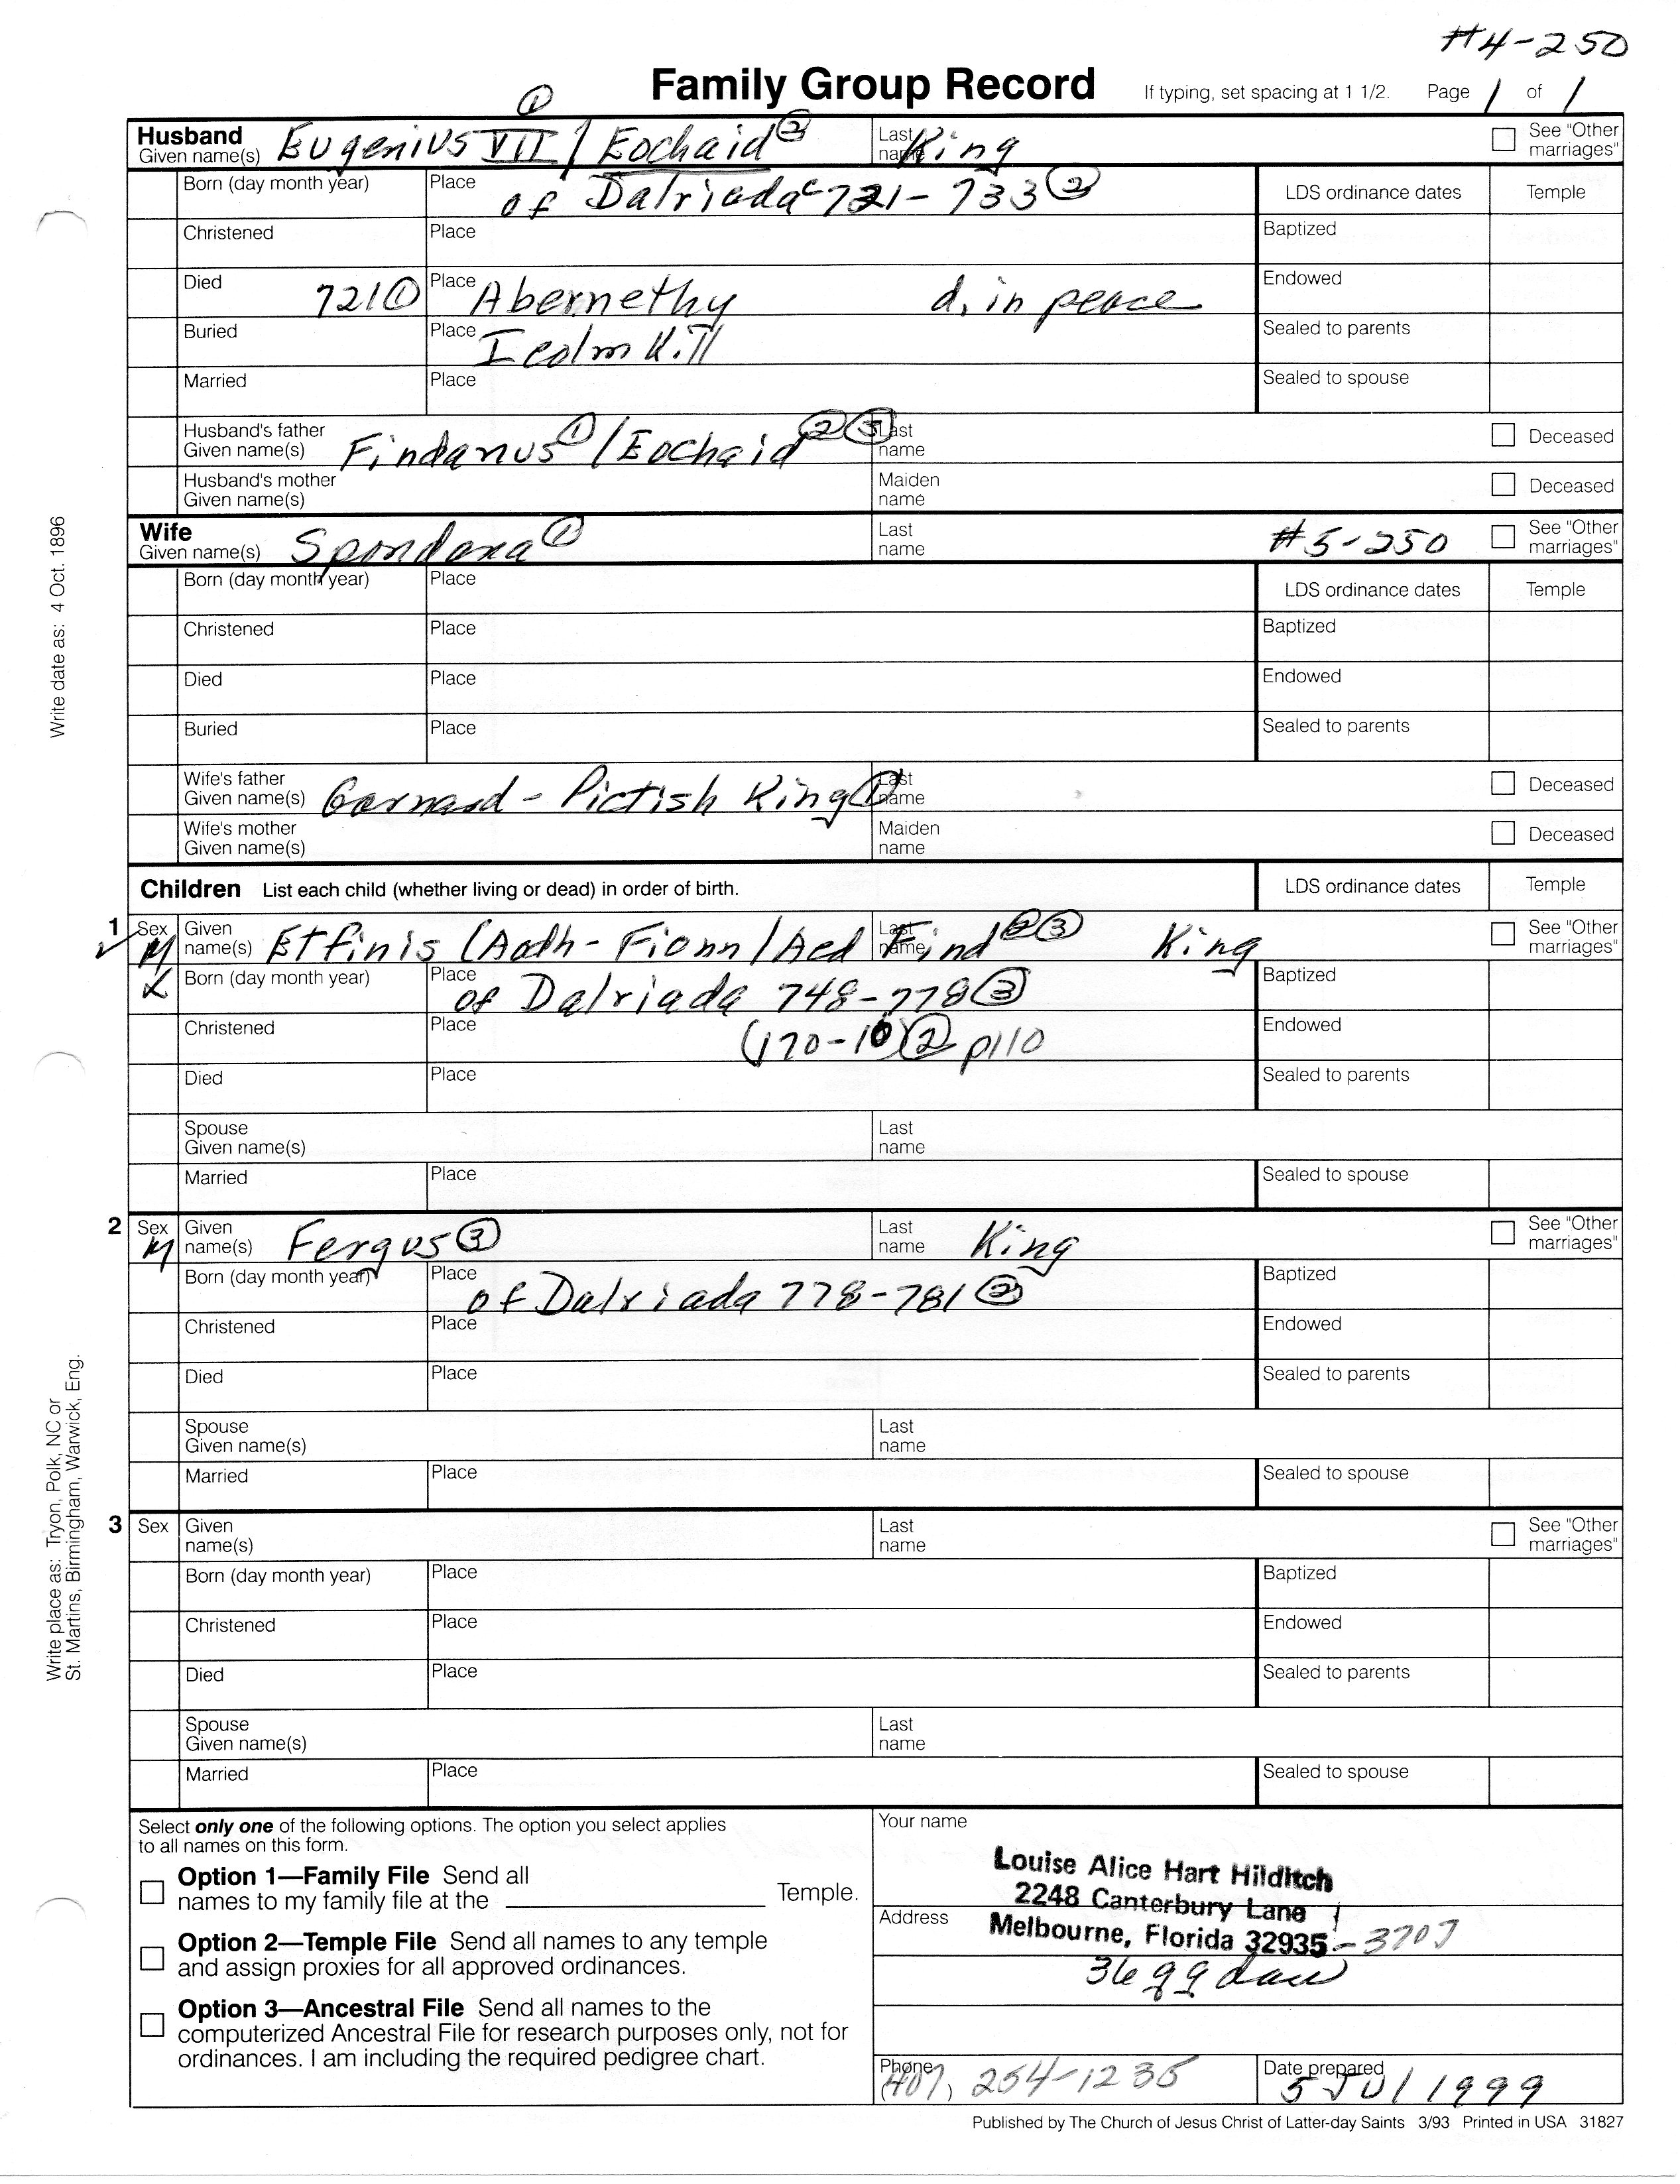 #4-250
Family Group Record If typing, set spacing at 1 1/2. Page 1 of 1
①
Husband
Given name(s) Eugenius VII / Eochaid ② Last name King See "Other marriages"
Born (day month year) Place of Dalriada c 721-733 ② LDS ordinance dates Temple
Christened Place Baptized
Died 721 ① Place Abernethy d. in peace Endowed
Buried Place Icolmkill Sealed to parents
Married Place Sealed to spouse
Husband's father
Given name(s) Findanus ① / Eochaid ② ③ Last name Deceased
Husband's mother
Given name(s) Maiden name Deceased
Wife
Given name(s) Spondana ① Last name #5-250 See "Other marriages"
Born (day month year) Place LDS ordinance dates Temple
Christened Place Baptized
Died Place Endowed
Buried Place Sealed to parents
Wife's father
Given name(s) Garnard - Pictish King ① Last name Deceased
Wife's mother
Given name(s) Maiden name Deceased
Children List each child (whether living or dead) in order of birth. LDS ordinance dates Temple
1 Sex M Given name(s) Etfinis (Aodh-Fionn / Aed Find ② ③ Last name King See "Other marriages"
Born (day month year) Place of Dalriada 748-778 ③ Baptized
Christened Place (170-10) ② p110 Endowed
Died Place Sealed to parents
Spouse
Given name(s) Last name
Married Place Sealed to spouse
2 Sex M Given name(s) Fergus ③ Last name King See "Other marriages"
Born (day month year) Place of Dalriada 778-781 ② Baptized
Christened Place Endowed
Died Place Sealed to parents
Spouse
Given name(s) Last name
Married Place Sealed to spouse
3 Sex Given name(s) Last name See "Other marriages"
Born (day month year) Place Baptized
Christened Place Endowed
Died Place Sealed to parents
Spouse
Given name(s) Last name
Married Place Sealed to spouse
Write date as: 4 Oct. 1896
Write place as: Tryon, Polk, NC or
St. Martins, Birmingham, Warwick, Eng.
Select only one of the following options. The option you select applies
to all names on this form.
Option 1—Family File Send all
names to my family file at the Temple.
Option 2—Temple File Send all names to any temple
and assign proxies for all approved ordinances.
Option 3—Ancestral File Send all names to the
computerized Ancestral File for research purposes only, not for
ordinances. I am including the required pedigree chart.
Your name
Louise Alice Hart Hilditch
2248 Canterbury Lane
Address Melbourne, Florida 32935-3707
Phone (407) 254-1235 Date prepared 5 Jul 1999
Published by The Church of Jesus Christ of Latter-day Saints 3/93 Printed in USA 31827